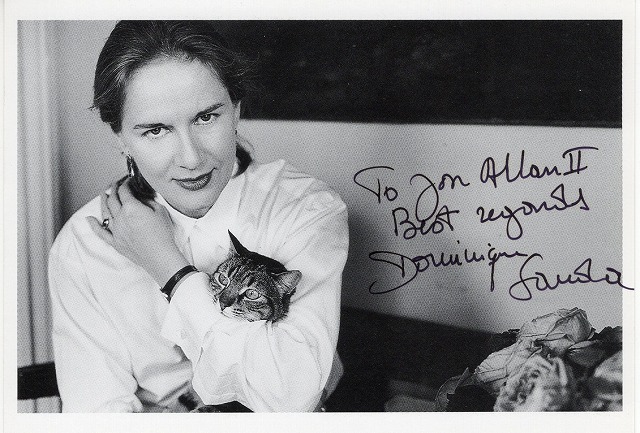 To Jon Allan II
Best regards
Dominique
Sanda